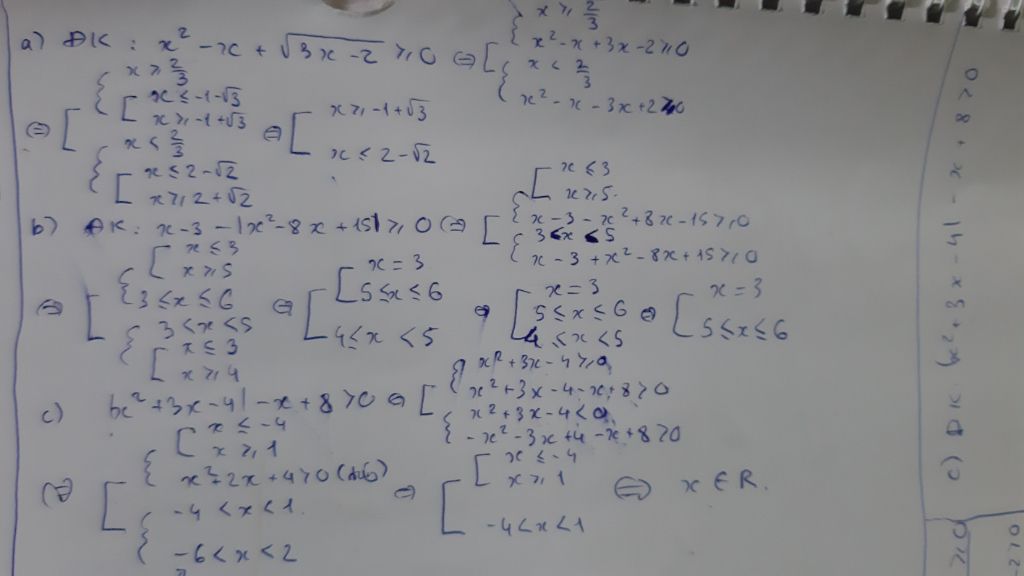 a) ĐK: x² - x + √3x-2 ≥ 0 ⇔ [ { x ≥ 2/3
x² - x + 3x - 2 ≥ 0
{ x < 2/3
x² - x - 3x + 2 ≥ 0
⇔ [ { x ≥ 2/3
[ x ≤ -1-√3
x ≥ -1+√3
{ x < 2/3
[ x ≤ 2-√2
x ≥ 2+√2
⇔ [ x ≥ -1+√3
x ≤ 2-√2
b) ĐK: x-3 - |x²-8x+15| ≥ 0 ⇔ [ { [ x ≤ 3
x ≥ 5
x-3 - x²+8x-15 ≥ 0
{ 3 < x < 5
x-3 + x²-8x+15 ≥ 0
⇔ [ { [ x ≤ 3
x ≥ 5
3 ≤ x ≤ 6
{ 3 < x < 5
[ x ≤ 3
x ≥ 4
⇔ [ [ x = 3
5 ≤ x ≤ 6
4 ≤ x < 5
⇔ [ x = 3
5 ≤ x ≤ 6
4 ≤ x < 5
⇔ [ x = 3
5 ≤ x ≤ 6
c) |x²+3x-4| - x + 8 > 0 ⇔ [ { x²+3x-4 ≥ 0
x²+3x-4-x+8 > 0
{ x²+3x-4 < 0
-x²-3x+4-x+8 > 0
⇔ [ { [ x ≤ -4
x ≥ 1
x²+2x+4 > 0
{ -4 < x < 1
-6 < x < 2
⇔ [ [ x ≤ -4
x ≥ 1
-4 < x < 1
⇔ x ∈ R.
c) ĐK |x²+3x-4| - x + 8 > 0
≥ 0
-2 > 0